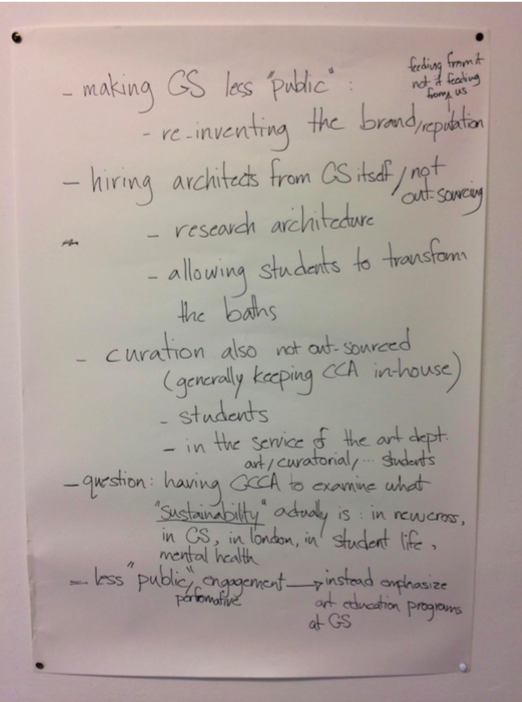 - making GS less "public" :
feeding from it
not it feeding
from us
- re-inventing the brand/reputation
- hiring architects from GS itself / not
out-sourcing
- research architecture
- allowing students to transform
the baths
- curation also not out-sourced
(generally keeping CCA in-house)
- students
- in the service of the art dept.
art/curatorial/... students
- question: having GCCA to examine what
"sustainability" actually is : in newcross,
in GS, in london, in student life,
mental health
- less "public", engagement → instead emphasize
performative
art education programs
at GS